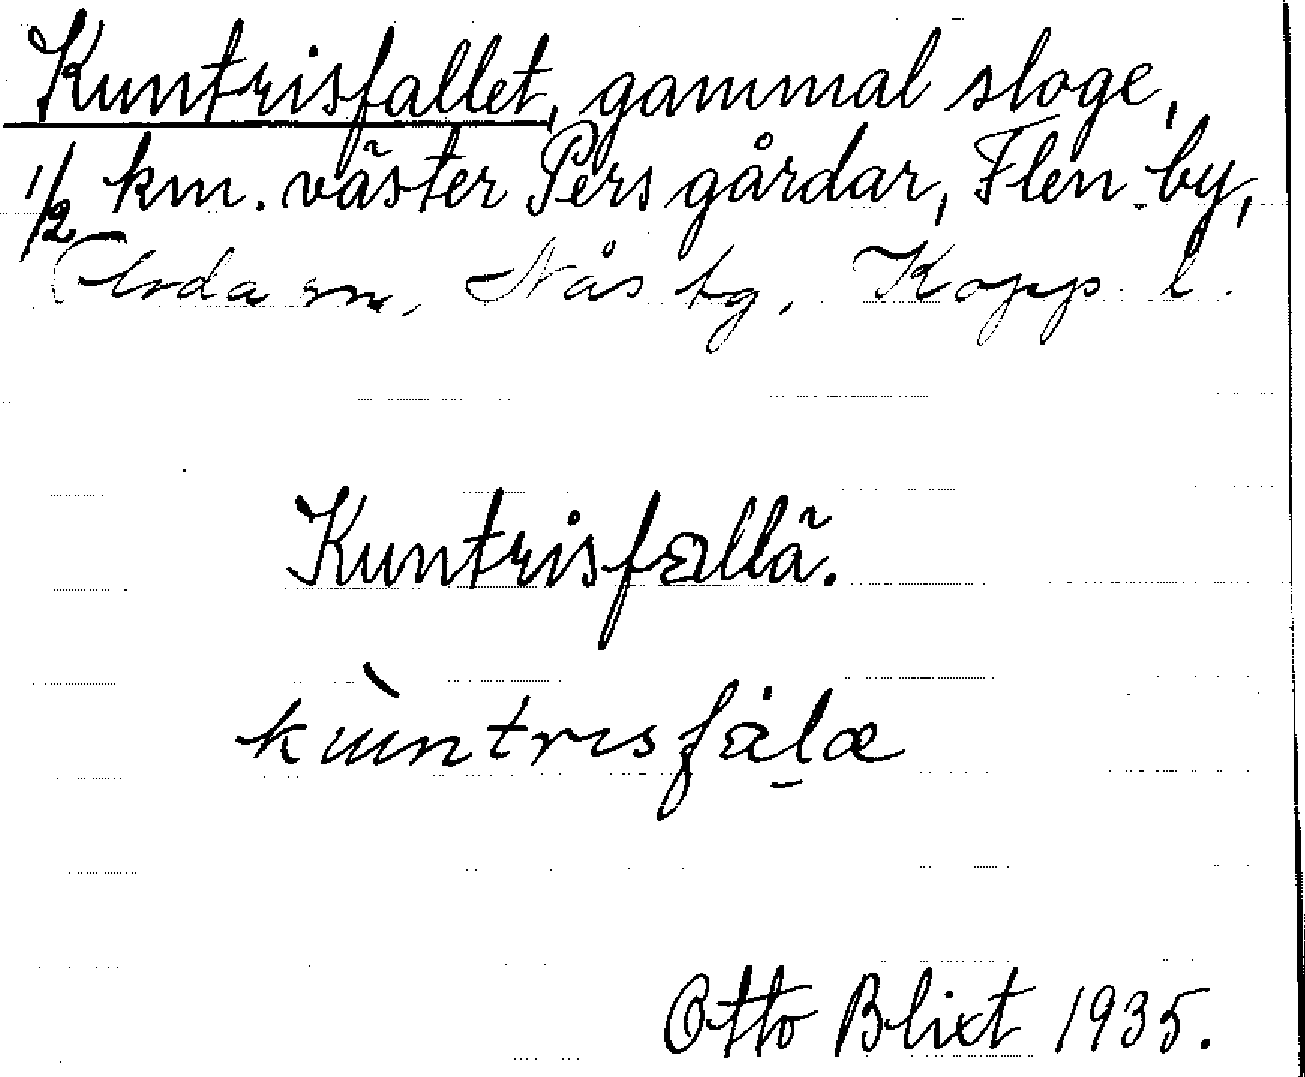 Kuntrisfallet, gammal sloge,
1/2 km. väster Pers gårdar, Flen by,
Floda sn, Nås tg, Kopp. l.
Kuntrisfallä.
kùntrisfalæ
Otto Blixt 1935.